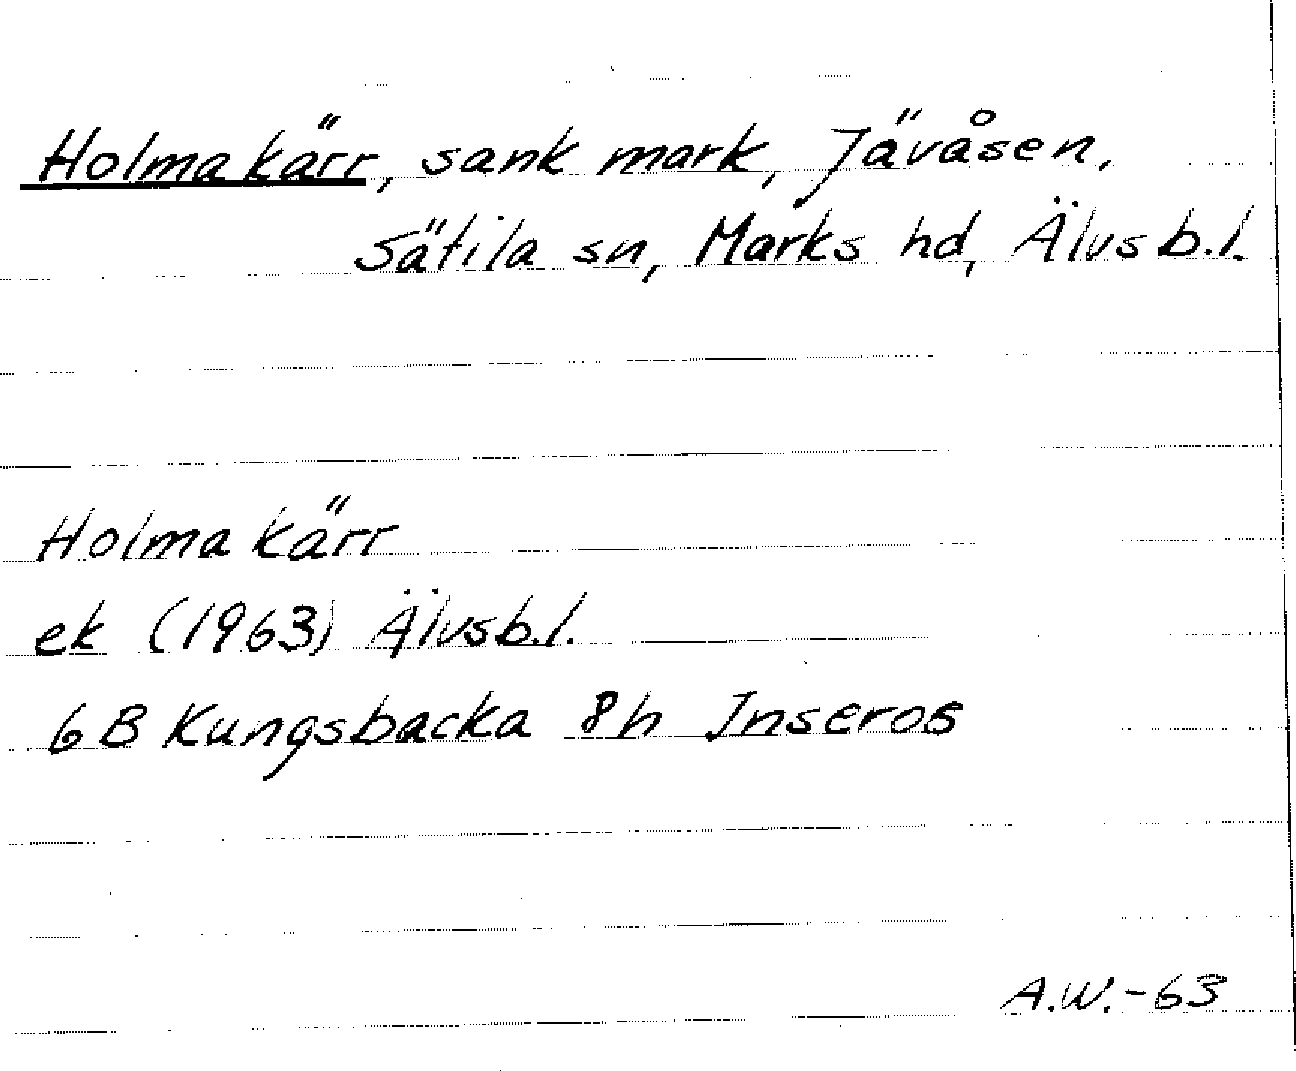 Holmakärr, sank mark, Jävåsen,
Sätila sn, Marks hd, Älvsb.l.
Holmakärr
ek (1963) Älvsb.l.
6B Kungsbacka 8h Inseros
A.W.-63